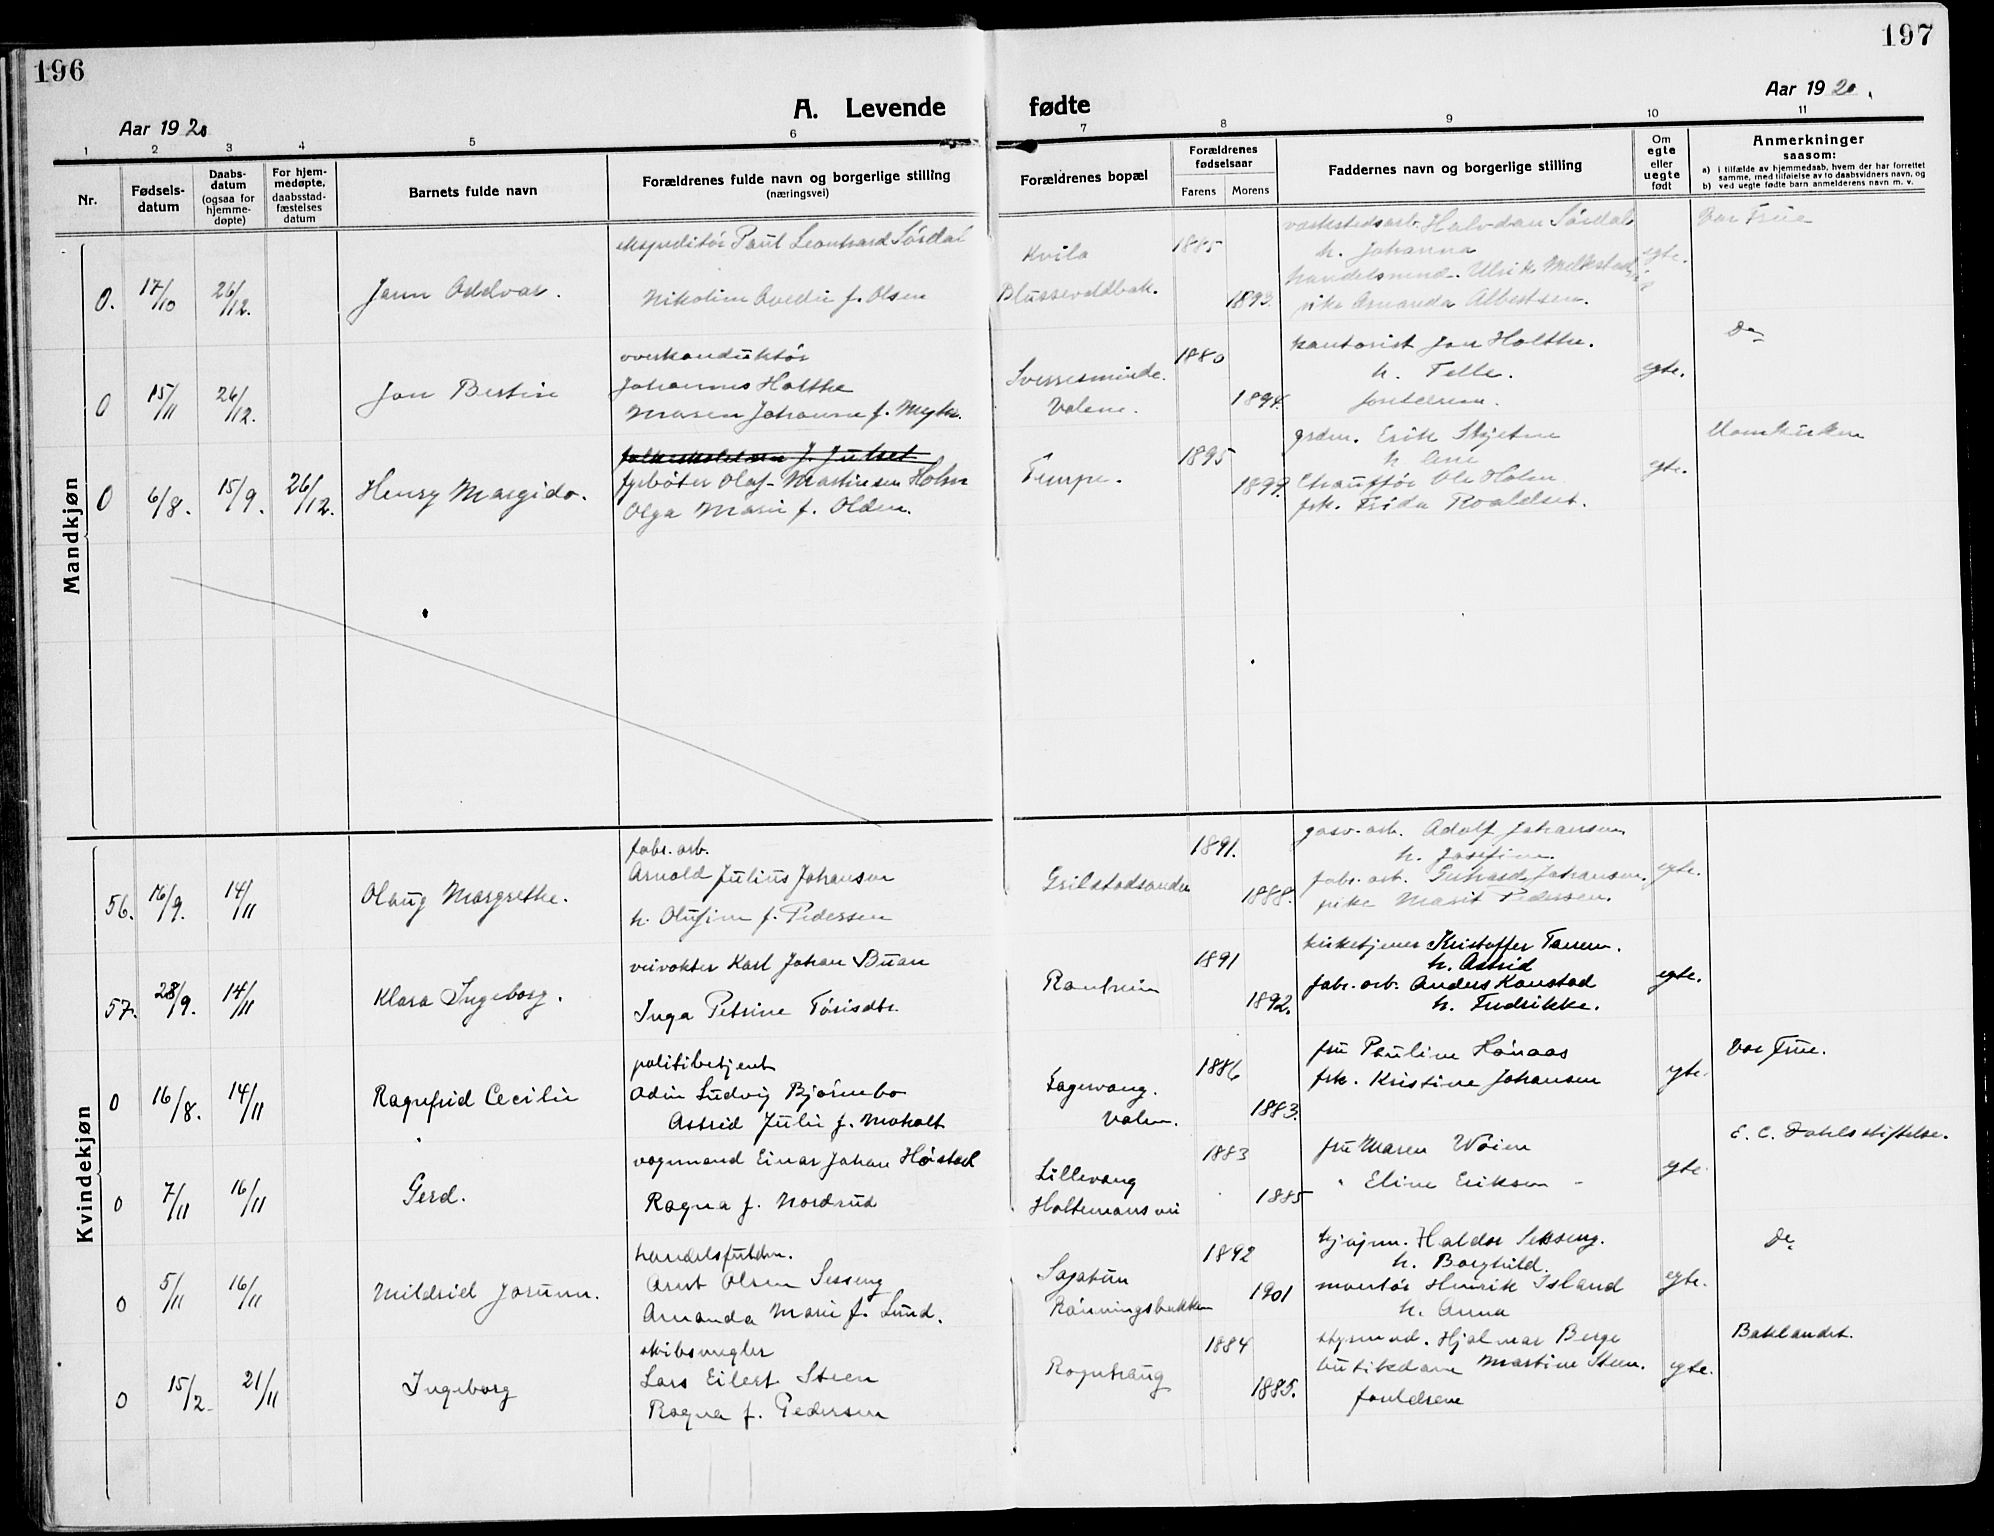 196
197
Aar 1920
A. Levende fødte
Aar 1920.
1 2 3 4 5 6 7 8 9 10 11
Nr.
Fødsels-
datum
Daabs-
datum
(ogsaa for
hjemme-
døpte)
For hjem-
medøpte,
daabsstad-
fæstelses
datum
Barnets fulde navn
Forældrenes fulde navn og borgerlige stilling
(næringsvei)
Forældrenes bopæl
Forældrenes
fødselsaar
Farens Morens
Faddernes navn og borgerlige stilling
Om
egte
eller
uegte
født
Anmerkninger
saasom:
a) i tilfælde av hjemmedaab, hvem der har forrettet
samme, med tilføielse av to daabsvidners navn, og
b) ved uegte fødte barn anmelderens navn m. v.
Mandkjøn
0. 17/10 26/12. Jann Oddvar.
ekspeditør Paul Leonhard Sördal
Nikoline Ovedie f. Olsen
Kvila
Blussevoldbak.
1885
1893.
verkstedsarb. Halvdan Sördal
h. Johanna
handelsmand. Ulrik
pike Amanda Albertsen.
egte.
Vor Frue
0 15/11 26/12. Jon Bertin
overkonduktör
Johannes Holthe
Maren Johanne f. Myhr.
Sverresminde.
Valene.
1880
1894.
kontorist Jon Holthe.
h.
foreldrene.
egte.
Do
0 6/8. 15/9. 26/12. Henry Margido.
fyrböter Olaf Martinsen Holm
Olga Marie f. Olden.
Tempe.
1895
1899.
grdm. Erik Skjetne
h. Ane
Chauffør Ole Holm
frk. Frida Roaldset.
egte.
Domkirken
Kvindekjøn
56. 16/9. 14/11 Olaug Margrethe.
fabr. arb.
Arnold Julius Johansen
h. Olufine f. Pedersen
Grilstadsanden
1891.
1888.
gasv. arb. Adolf Johansen
h. Josefine.
fabr. arb. Gerhard Johansen.
pike Marit Pedersen.
egte.
57. 28/9. 14/11 Klara Ingeborg.
veivokter Karl Johan Buan
Inga Petrine Törisdtr.
Ranheim
1891
1892.
kirketjener Kristoffer Tanem.
h. Astrid
fabr. arb. Anders Kanstad
h. Fredrikke.
egte.
0 16/8. 14/11 Ragnfrid Cecilie
politibetjent
Odin Ludvig Bjørnebo
Astrid Julie f. Moholt
Fagervang.
Valen.
1886
1883.
fru Pauline Hönaas
frk. Kristine Johansen
egte.
Vor Frue.
0 7/11 16/11 Gerd.
vognmand Einar Johan Høistad
Ragna f. Nordrud
Lillevang
Holtemansvei
1883
1885
fru Maren Wöien
" Eline Eriksen
egte.
E. C. Dahls stiftelse.
0 5/11 16/11 Mildrid Jorunn.
handelsfuldm.
Arnt Olsen Sesseng
Amanda Marie f. Lund.
Sagatun
Rönningsbakken
1892
1901
kjøpm. Haldor Sesseng.
h. Borghild.
montør Henrik Island
h. Anna
egte.
Do
0 15/2. 21/11 Ingeborg
skibsmegler
Lars Eilert Steen
Ragna f. Pedersen
Rognhaug
1884
1885.
styrmd. Hjalmar Berge
butikdame Martine Steen.
foreldrene
egte.
Baklandet.